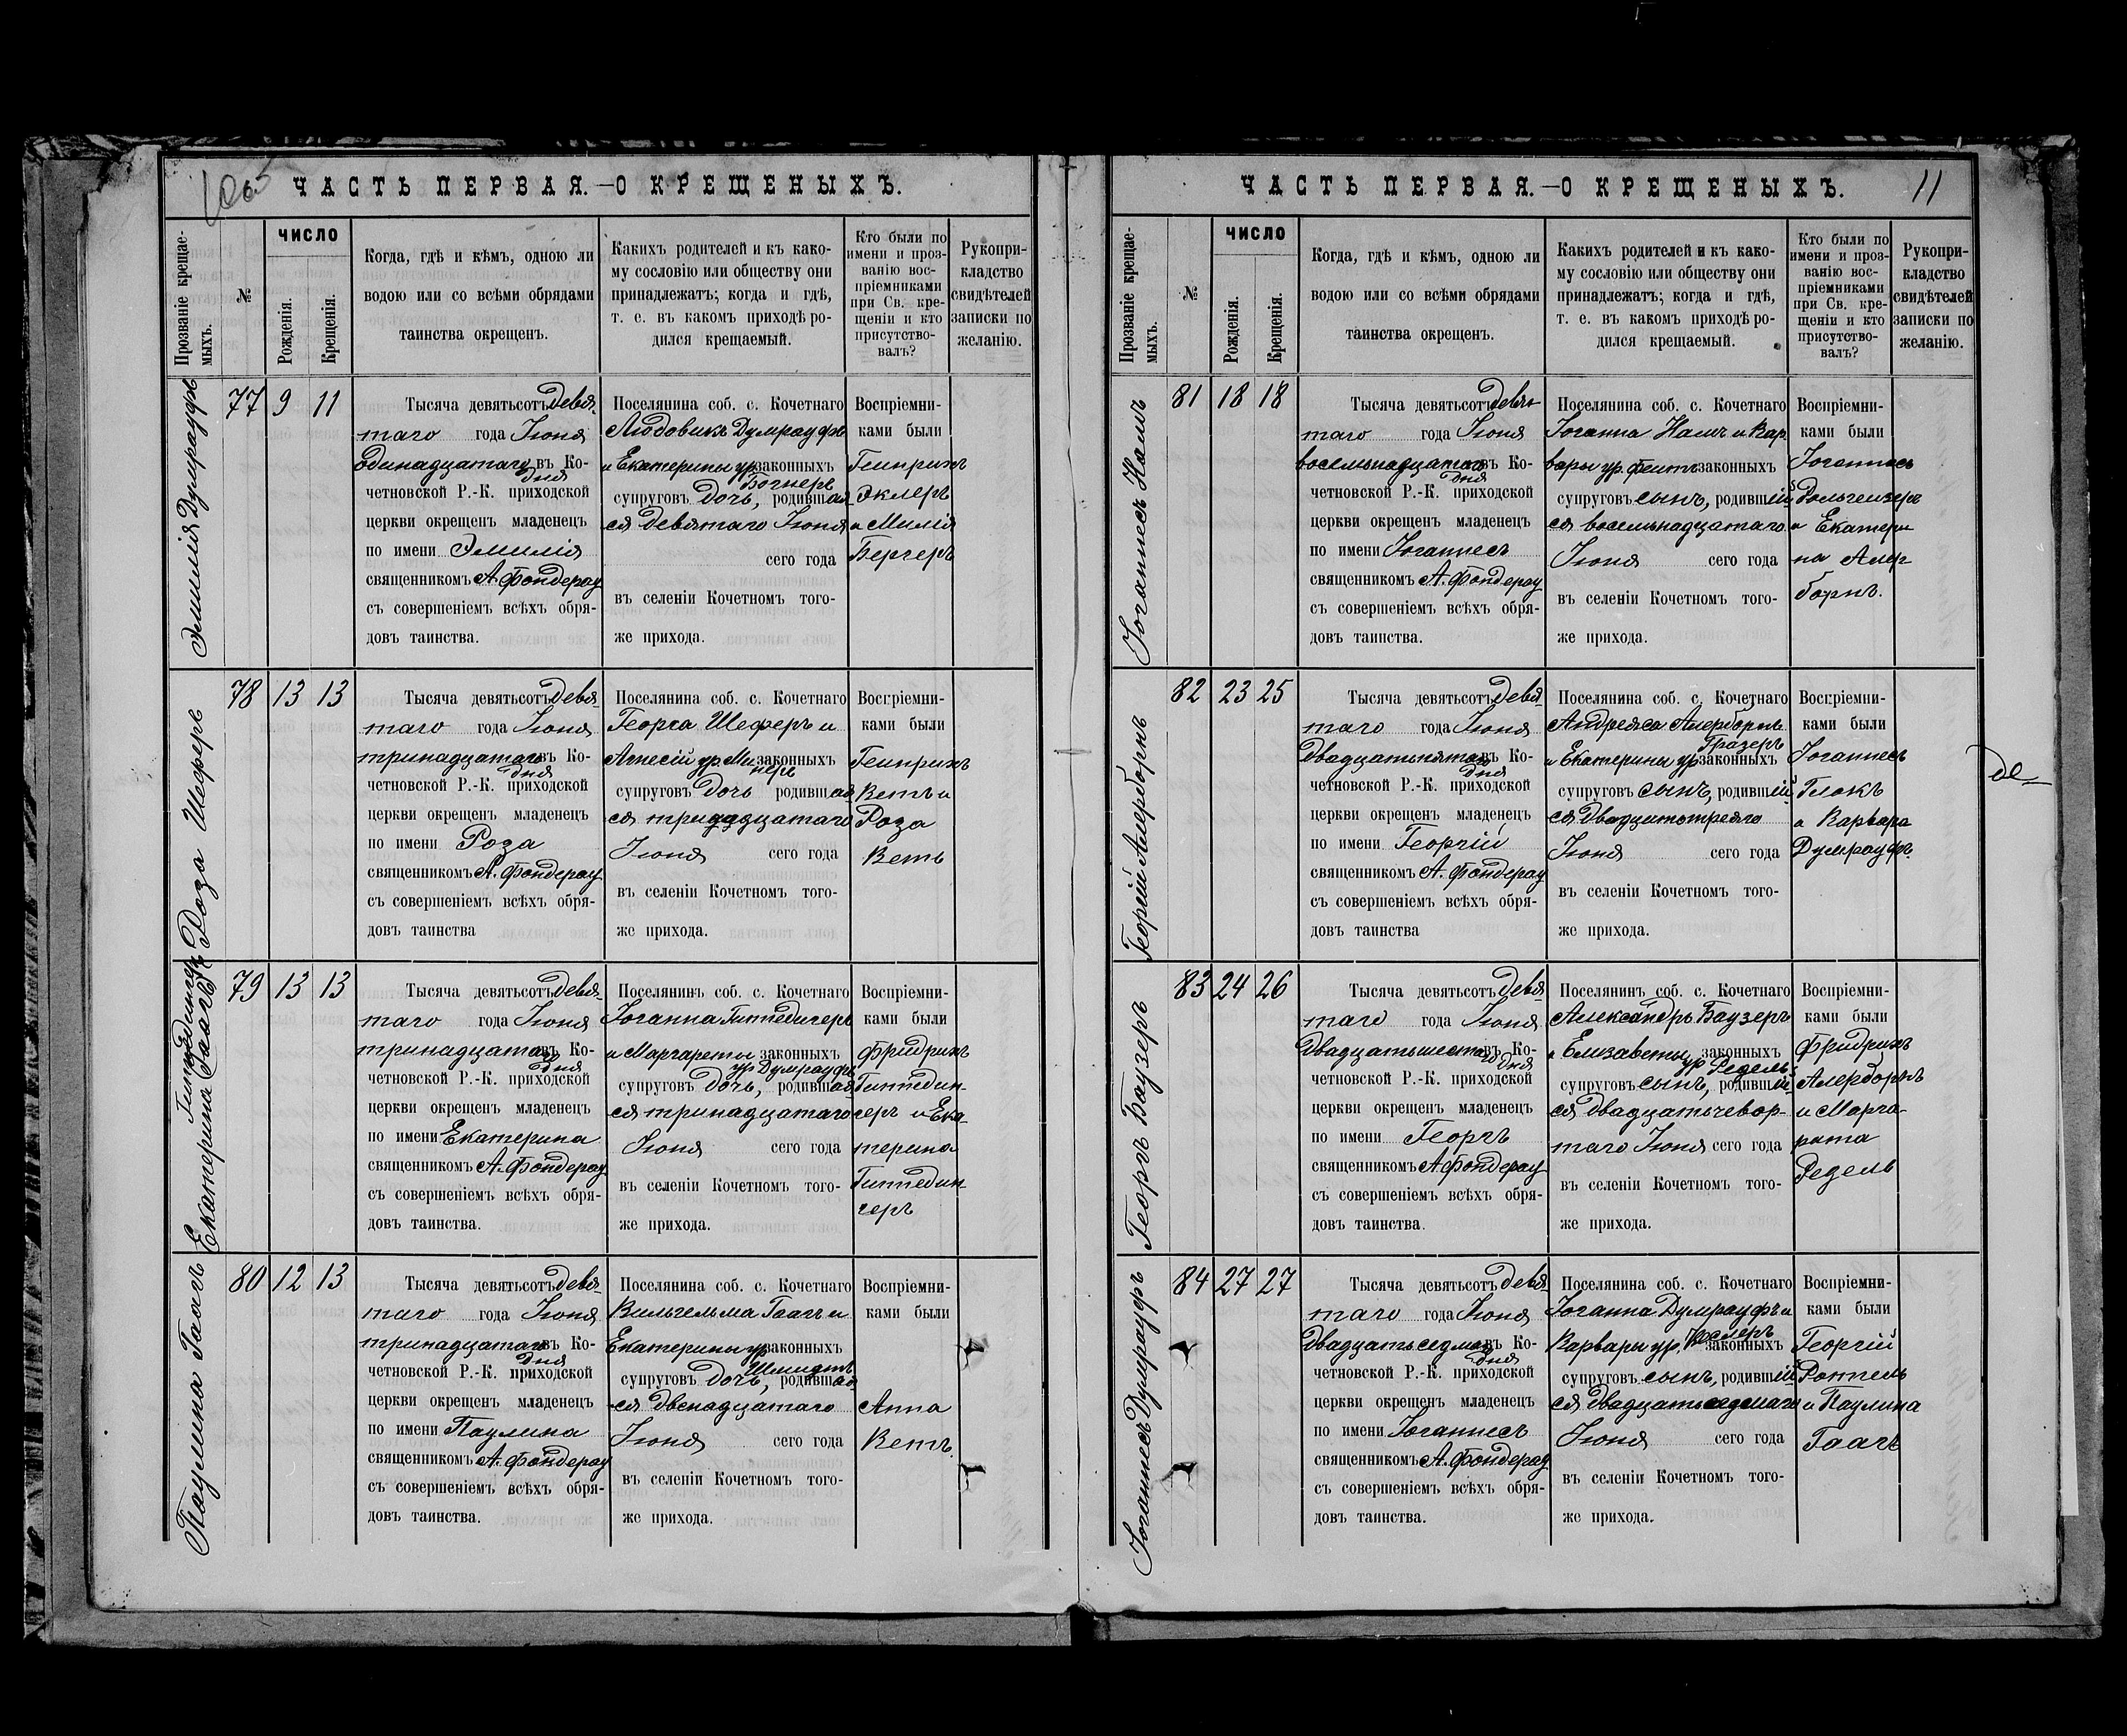 ЧАСТЬ ПЕРВАЯ.—О КРЕЩЕНЫХЪ.
Прозваніе крещае-
мыхъ.
№
ЧИСЛО
Рожденія.
Крещенія.
Когда, гдѣ и кѣмъ, одною ли
водою или со всѣми обрядами
таинства окрещенъ.
Какихъ родителей и къ како-
му сословію или обществу они
принадлежатъ; когда и гдѣ,
т. е. въ какомъ приходѣ ро-
дился крещаемый.
Кто были по
имени и проз-
ванію вос-
пріемниками
при Св. кре-
щеніи и кто
присутство-
валъ?
Рукопри-
кладство
свидѣтелей
записки по
желанію.
Эмилія Думрауфъ
77 9 11
Тысяча девятьсотъ девя-
таго года Іюня
одинадцатаго въ Ко-
дня
четновской Р.-К. приходской
церкви окрещен младенецъ
по имени Эмилія
священникомъ А. Фондерау
съ совершеніемъ всѣхъ обря-
довъ таинства.
Поселянина соб. с. Кочетнаго
Людовикъ Думрауфъ
и Екатерины ур. законныхъ
Богнеръ
супруговъ дочь, родившая
ся девятаго Іюня
сего года
въ селеніи Кочетномъ того-
же прихода.
Воспріемни-
ками были
Генрихъ
Эклеръ
и Милія
Бергеръ
Роза Шеферъ
78 13 13
Тысяча девятьсотъ девя-
таго года Іюня
тринадцатаго въ Ко-
дня
четновской Р.-К. приходской
церкви окрещен младенецъ
по имени Роза
священникомъ А. Фондерау
съ совершеніемъ всѣхъ обря-
довъ таинства
Поселянина соб. с. Кочетнаго
Георга Шеферъ и
Агнесій ур. Ми законныхъ
неръ
супруговъ дочь родившая
ся тринадцатаго
Іюня сего года
въ селеніи Кочетном того-
же прихода.
Воспріемни-
ками были
Генрихъ
Ветъ и
Роза
Ветъ
Екатерина
79 13 13
Тысяча девятьсотъ девя-
таго года Іюня
тринадцатаго въ Ко-
дня
четновской Р.-К. приходской
церкви окрещен младенецъ
по имени Екатерина
священникомъ А. Фондерау
съ совершеніемъ всѣхъ обря-
довъ таинства.
Поселянинъ соб. с. Кочетнаго
Іоганна Гиппедигеръ
и Маргареты законныхъ
ур Думрауфъ
супруговъ дочь, родившая
ся тринадцатаго
Іюня сего года
въ селеніи Кочетномъ того-
же прихода.
Воспріемни-
ками были
Фридрихъ
Гиппедин-
геръ и Ека-
терина
Гиппедин-
геръ
Паулина Гаагъ
80 12 13
Тысяча девятьсотъ девя-
таго года Іюня
тринадцатаго въ Ко-
дня
четновской Р.-К. приходской
церкви окрещен младенецъ
по имени Паулина
священникомъ А. Фондерау
съ совершеніемъ всѣхъ обря-
довъ таинства.
Поселянина соб. с. Кочетнаго
Вильгельма Гаагъ и
Екатерины ур. законныхъ
Шмидтъ
супруговъ дочь, родившая
ся двенадцатаго
Іюня сего года
въ селеніи Кочетномъ того-
же прихода.
Воспріемни-
ками были
Анна
Ветъ
ЧАСТЬ ПЕРВАЯ.—О КРЕЩЕНЫХЪ.
11
Прозваніе крещае-
мыхъ.
№
ЧИСЛО
Рожденія.
Крещенія.
Когда, гдѣ и кѣмъ, одною ли
водою или со всѣми обрядами
таинства окрещенъ.
Какихъ родителей и къ како-
му сословію или обществу они
принадлежатъ; когда и гдѣ,
т. е. въ каком приходѣ ро-
дился крещаемый.
Кто были по
имени и проз-
ванію вос-
пріемниками
при Св. кре-
щеніи и кто
присутство-
валъ?
Рукопри-
кладство
свидѣтелей
записки по
желанію.
Іоганнесъ Намъ
81 18 18
Тысяча девятьсотъ девя-
таго года Іюня
восемьнадцатаго въ Ко-
дня
четновской Р.-К. приходской
церкви окрещен младенецъ
по имени Іоганнесъ
священникомъ А. Фондерау
съ совершеніемъ всѣхъ обря-
довъ таинства.
Поселянина соб. с. Кочетнаго
Іоганна Намъ и Вар
вары ур. Фентъ законныхъ
супруговъ сынъ, родившій
ся восемьнадцатаго
Іюня сего года
въ селеніи Кочетномъ того-
же прихода.
Воспріемни-
ками были
Іоганнесъ
и Екатери
на Алер
борнъ.
Георгій Алерборнъ
82 23 25
Тысяча девятьсотъ девя-
таго года Іюня
двадцатьпятаго въ Ко-
дня
четновской Р.-К. приходской
церкви окрещен младенецъ
по имени Георгій
священникомъ А. Фондерау
съ совершеніемъ всѣхъ обря-
довъ таинства
Поселянина соб. с. Кочетнаго
Андреаса Алерборнъ
Гразеръ
и Екатерины ур законныхъ
супруговъ сынъ, родившій
ся двадцатьтретяго
Іюня сего года
въ селеніи Кочетном того-
же прихода.
Воспріемни-
ками были
Іоганнесъ
Глокъ
и Варвара
Думрауфъ.
де
Георгъ Баузеръ
83 24 26
Тысяча девятьсотъ девя-
таго года Іюня
двадцатьшестаго въ Ко-
дня
четновской Р.-К. приходской
церкви окрещен младенецъ
по имени Георгъ
священникомъ А Фондерау
съ совершеніемъ всѣхъ обря-
довъ таинства.
Поселянинъ соб. с. Кочетнаго
Александръ Баузеръ
и Елизаветы законныхъ
ур Редель
супруговъ сынъ, родившій
ся двадцатьчевор-
таго Іюня сего года
въ селеніи Кочетномъ того-
же прихода.
Воспріемни-
ками были
Фридрихъ
Алерборнъ
и Марга-
рата
Редель
Іоганнесъ Думрауфъ
84 27 27
Тысяча девятьсотъ девя-
таго года Іюня
двадцатьседмаго въ Ко-
дня
четновской Р.-К. приходской
церкви окрещен младенецъ
по имени Іоганнесъ
священникомъ А. Фондерау
съ совершеніемъ всѣхъ обря-
довъ таинства.
Поселянина соб. с. Кочетнаго
Іоганна Думрауфъ и
Варвары ур. законныхъ
супруговъ сынъ, родившій
ся двадцатьседмаго
Іюня сего года
въ селеніи Кочетномъ того-
же прихода.
Воспріемни-
ками были
Георгій
Роппель
и Паулина
Гаагъ